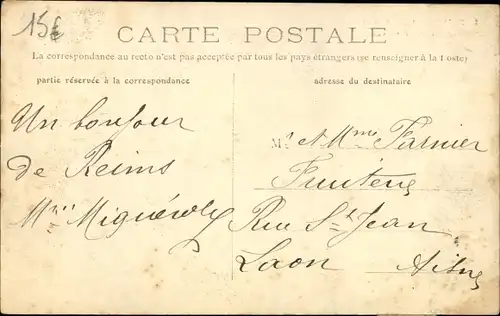 15€
CARTE POSTALE
La correspondance au recto n'est pas acceptée par tous les pays étrangers (se renseigner à la Poste)
partie réservée à la correspondance
adresse du destinataire
Un bonjour
de Reims
Mr et Mme
Rue St Jean
Laon Aisne